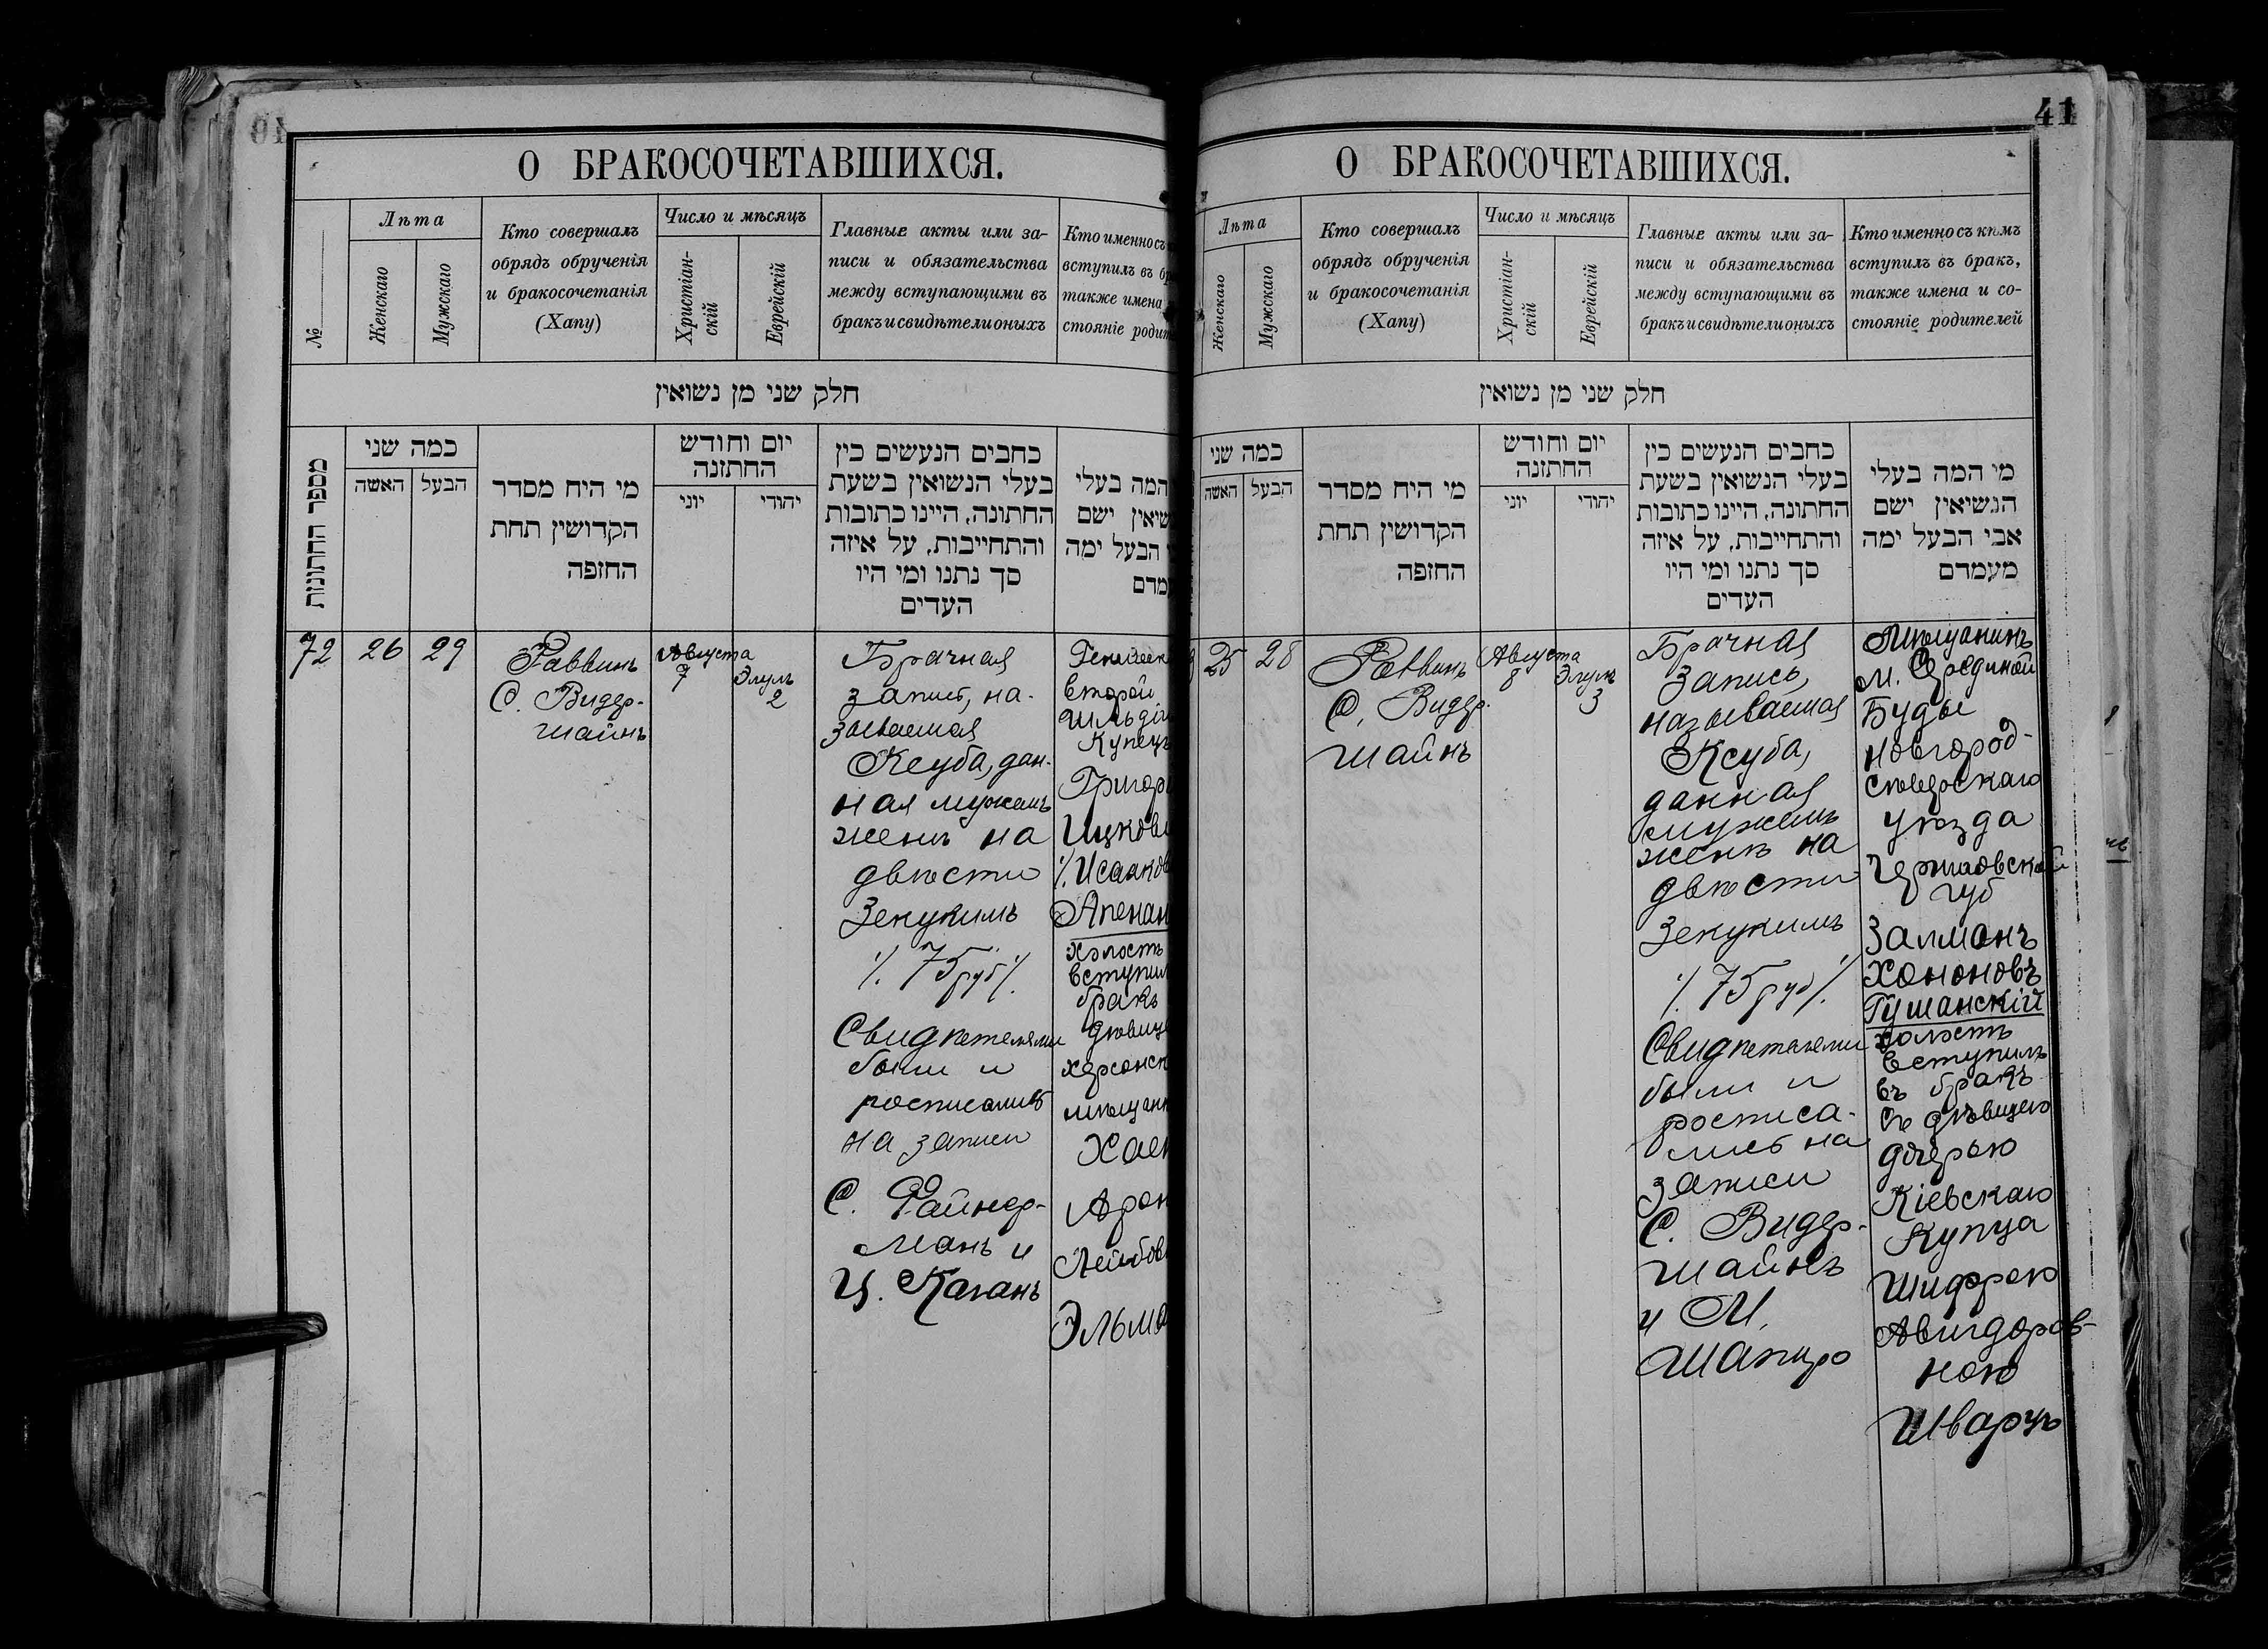 О БРАКОСОЧЕТАВШИХСЯ.
№
Лѣта
Женскаго
Мужскаго
Кто совершалъ
обрядъ обрученія
и бракосочетанія
(Хапу)
Число и мѣсяцъ
Христіан-
скій
Еврейскій
Главные акты или за-
писи и обязательства
между вступающими въ
бракъ и свидѣтели оныхъ
Кто именно съ
вступилъ въ
также имена
стояніе
חלק שני מן נשואין
מספר החתונות
כמה שני
האשה
הבעל
מי היח מסדר
הקדושין תחת
החזפה
יום וחודש
החתזנה
יוני
יהודי
כחבים הנעשים כין
בעלי הנשואין בשעת
החתונה, היינו כתובות
והתחייבות, על איזה
סך נתנו ומי היו
העדים
המה בעלי
שיאין ישם
הבעל ימה
מדם
72
26
29
Раввинъ
С. Видер-
шайнъ
Августа
7
Элулъ
2
Брачная
запись, на-
зываемая
Ксуба, дан-
ная мужемъ
женѣ на
двѣсти
Зекукимъ
/. 75 руб /.
Свидѣтелями
были и
росписались
на записи
С. Файнер-
манъ и
Ц. Каганъ
второй
Купецъ
Григор
Ицков
/. Исааков
Апенан
холостъ
вступил
бракъ
дѣвице
херсонск
мѣщанк
Хаен
Арон
Лейбов
Эльма
41
О БРАКОСОЧЕТАВШИХСЯ.
Лѣта
Женскаго
Мужскаго
Кто совершалъ
обрядъ обрученія
и бракосочетанія
(Хапу)
Число и мѣсяцъ
Христіан-
скій
Еврейскій
Главные акты или за-
писи и обязательства
между вступающими въ
бракъ и свидѣтели оныхъ
Кто именно съ кѣмъ
вступилъ въ бракъ,
также имена и со-
стояніе родителей
חלק שני מן נשואין
כמה שני
האשה
הבעל
מי היח מסדר
הקדושין תחת
החזפה
יום וחודש
החתזנה
יוני
יהודי
כחבים הנעשים כין
בעלי הנשואין בשעת
החתונה, היינו כתובות
והתחייבות, על איזה
סך נתנו ומי היו
העדים
מי המה בעלי
הנשיאין ישם
אבי הבעל ימה
מעמדם
25
28
Раввинъ
С. Видер-
шайнъ
Августа
8
Элулъ
3
Брачная
запись,
называемая
Ксуба,
данная
мужемъ
женѣ на
двѣсти
Зекукимъ
/. 75 руб /.
Свидѣтелями
были и
росписа-
лись на
записи
С. Видер-
шайнъ
и М.
Шапиро
Мѣщанинъ
м. Середины
Буды
Новгород-
Сѣверскаго
уѣзда
Черниговской
губ
Залманъ
Хононовъ
Гушанскій
холостъ
вступилъ
въ бракъ
съ дѣвицею
дочерью
Кіевскаго
Купца
Шифрою
Авигдоров-
ною
Шварцъ